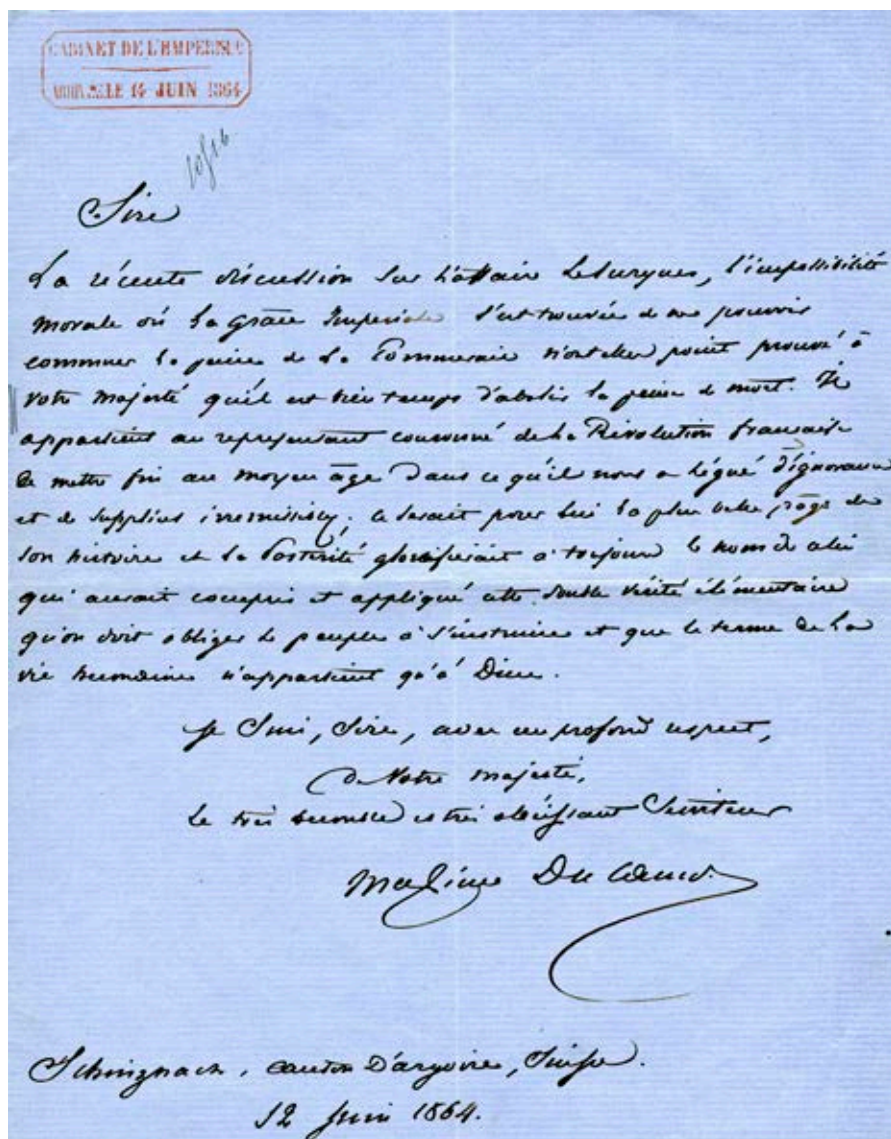 CABINET DE L'EMPEREUR
ARRIVÉE LE 14 JUIN 1864
Sire
La récente discussion sur l'affaire Lesurques, l'impossibilité
morale où la Grâce Impériale s'est trouvée de ne pouvoir
commuer la peine de La Pommerais n'ont elles point prouvé à
votre majesté qu'il est bien temps d'abolir la peine de mort. Il
appartient au représentant couronné de la Révolution française
de mettre fin au moyen âge dans ce qu'il nous a légué d'ignorance
et de supplices irrémissibles; ce serait pour lui la plus belle page de
son histoire et la Postérité glorifierait à toujours le nom de celui
qui aurait compris et appliqué cette double vérité élémentaire
qu'on doit obliger le peuple à s'instruire et que le terme de la
vie humaine n'appartient qu'à Dieu.
Je suis, Sire, avec un profond respect,
de Votre majesté,
Le très humble et très obéissant Serviteur
Maxime Du Camp.
Schinznach, canton d'argovie, Suisse.
12 Juin 1864.